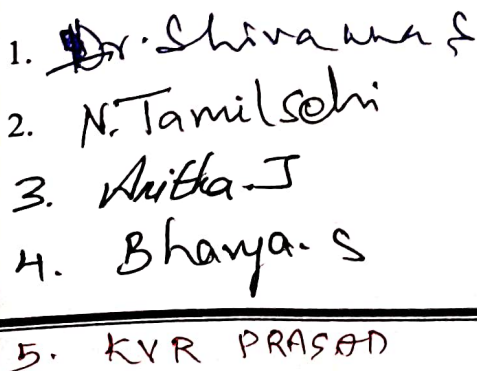 1. Dr. Shivanna S
2. N. Tamilselvi
3. Anitha. J
4. Bhavya. S
5. KVR PRASAD